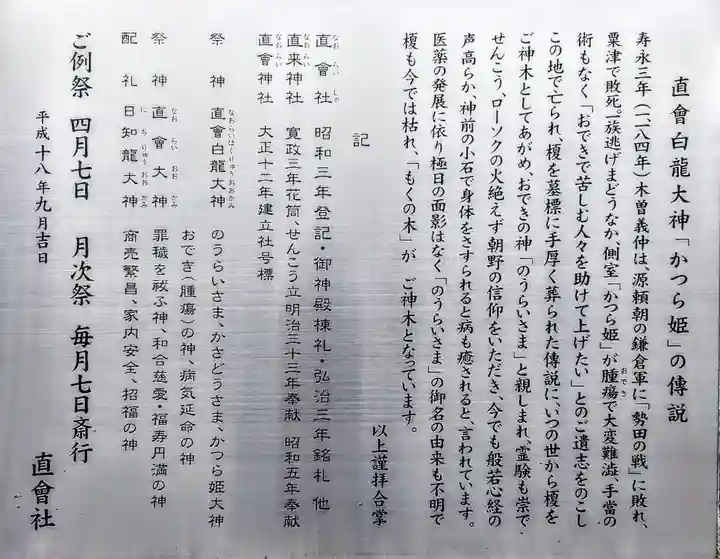 直會白龍大神「かつら姫」の傳説
寿永三年（一一八四年）木曽義仲は、源頼朝の鎌倉軍に「勢田の戦」に敗れ、
粟津で敗死。一族逃げまどうなか、側室「かつら姫」が腫瘍で大変難澁、手當の
おでき
術もなく「おできで苦しむ人々を助けて上げたい」とのご遺志をのこし
この地で亡られ、榎を墓標に手厚く葬られた傳説に、いつの世から榎を
ご神木としてあがめ、おできの神「のうらいさま」と親しまれ、霊験も崇で
せんこう、ローソクの火絶えず朝野の信仰をいただき、今でも般若心経の
声高らか、神前の小石で身体をさすられると病も癒されると、言われています。
医薬の発展に依り極日の面影はなく「のうらいさま」の御名の由来も不明で
榎も今では枯れ、「もくの木」が　ご神木となっています。
以上謹拝合掌
記
直會社　昭和三年登記・御神殿棟礼・弘治三年銘札　他
なおらいしゃ
直来神社　寛政三年花筒せんこう立明治三十三年奉献　昭和五年奉献
なおらい
直會神社　大正十二年建立社号標
なおらい
祭神　直會白龍大神　のうらいさま、かさどうさま、かつら姫大神
なおらいはくりゅうおおかみ
おでき（腫瘍）の神、病気延命の神
祭神　直會大神　罪穢を祓ふ神、和合慈愛・福寿円満の神
なおらいおおかみ
配礼　日知龍大神　商売繁昌、家内安全、招福の神
にちりゅうおおかみ
ご例祭　四月七日　月次祭　毎月七日斎行
平成十八年九月吉日
直會社